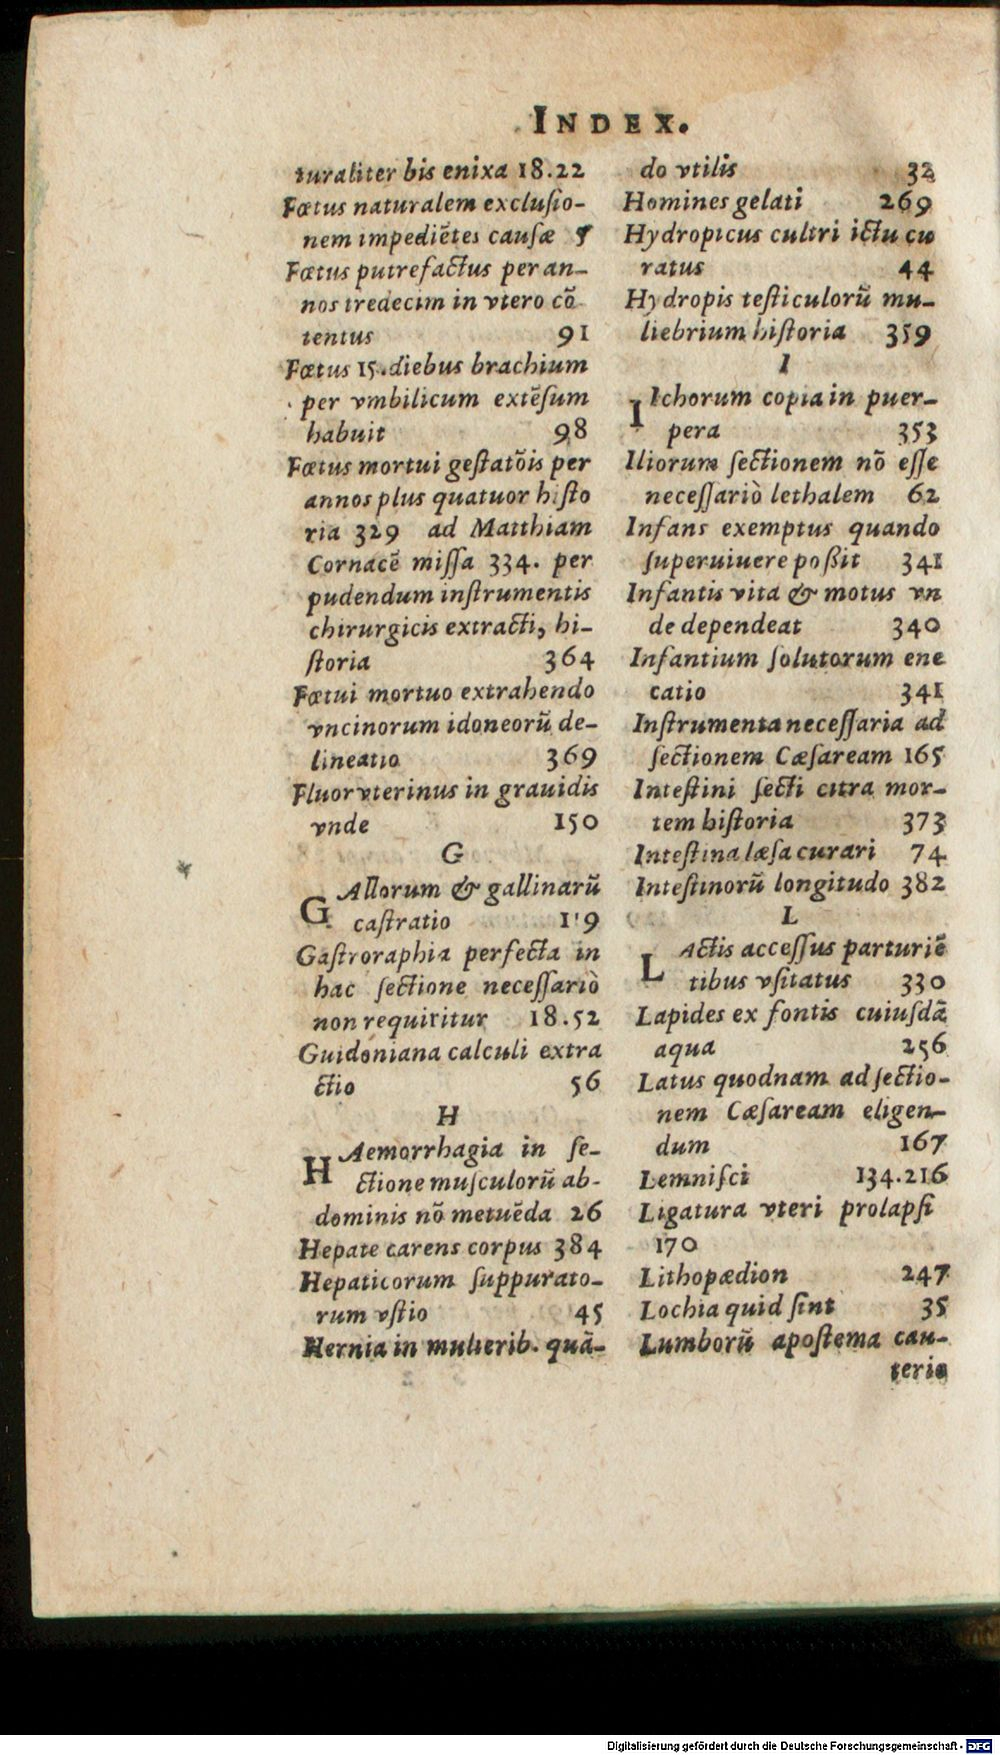 INDEX.
turaliter bis enixa 18.22
Fœtus naturalem exclusio-
nem impediẽtes causæ 5
Fœtus putrefactus per an-
nos tredecim in vtero cõ
tentus 91
Fœtus 15.diebus brachium
per vmbilicum extẽsum
habuit 98
Fœtus mortui gestatõis per
annos plus quatuor histo
ria 329 ad Matthiam
Cornacẽ missa 334. per
pudendum instrumentis
chirurgicis extracti, hi-
storia 364
Fœtui mortuo extrahendo
vncinorum idoneorũ de-
lineatio 369
Fluor vterinus in grauidis
vnde 150
G
GAllorum & gallinarũ
castratio 119
Gastroraphia perfecta in
hac sectione necessariò
non requiritur 18.52
Guidoniana calculi extra
ctio 56
H
HAemorrhagia in se-
ctione musculorũ ab-
dominis nõ metuẽda 26
Hepate carens corpus 384
Hepaticorum suppurato-
rum vstio 45
Hernia in mulierib. quã-
do vtilis 32
Homines gelati 269
Hydropicus cultri ictu cu
ratus 44
Hydropis testiculorũ mu-
liebrium historia 359
I
IIchorum copia in puer-
pera 353
Iliorum sectionem nõ esse
necessariò lethalem 62
Infans exemptus quando
superuiuere poßit 341
Infantis vita & motus vn
de dependeat 340
Infantium solutorum ene
catio 341
Instrumenta necessaria ad
sectionem Cæsaream 165
Intestini secti citra mor-
tem historia 373
Intestina læsa curari 74
Intestinorũ longitudo 382
L
LActis accessus parturiẽ
tibus vsitatus 330
Lapides ex fontis cuiusdã
aqua 256
Latus quodnam ad sectio-
nem Cæsaream eligen-
dum 167
Lemnisci 134.216
Ligatura vteri prolapsi
170
Lithopædion 247
Lochia quid sint 35
Lumborũ apostema cau-
terio
Digitalisierung gefördert durch die Deutsche Forschungsgemeinschaft - DFG